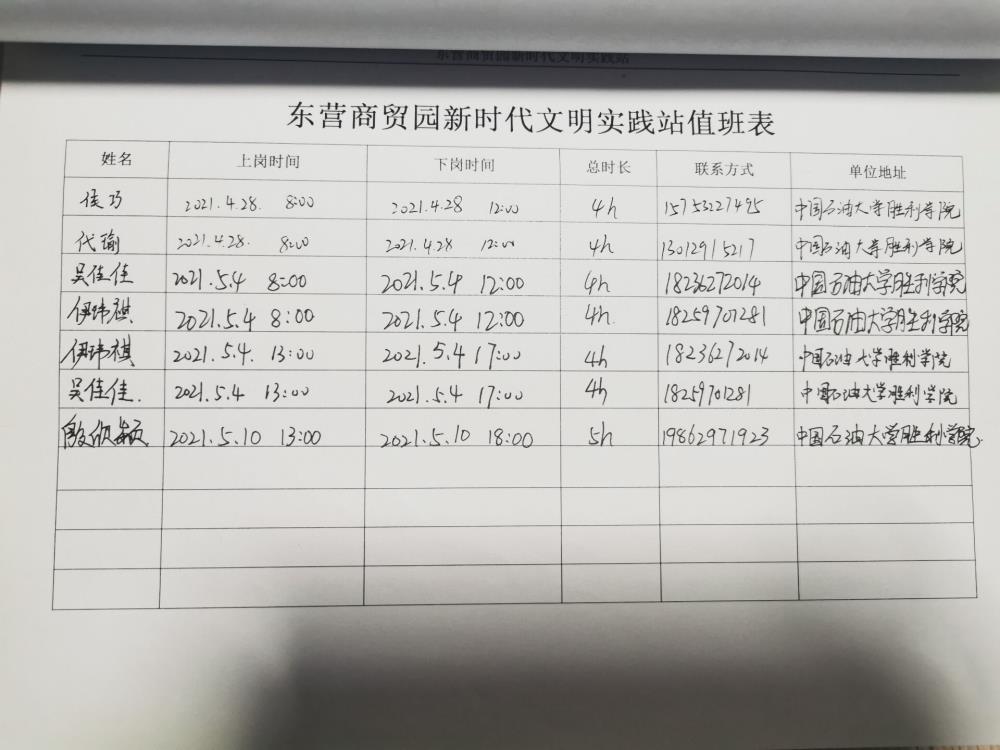 东营商贸园新时代文明实践站
东营商贸园新时代文明实践站值班表
姓名 上岗时间 下岗时间 总时长 联系方式 单位地址
侯巧 2021.4.28. 8:00 2021.4.28 12:00 4h 15753227495 中国石油大学胜利学院
代瑜 2021.4.28. 8:00 2021.4.28 12:00 4h 13012915217 中国石油大学胜利学院
吴佳佳 2021.5.4 8:00 2021.5.4 12:00 4h 18236272014 中国石油大学胜利学院
伊玮祺 2021.5.4 8:00 2021.5.4 12:00 4h 18259701281 中国石油大学胜利学院
伊玮祺 2021.5.4. 13:00 2021.5.4 17:00 4h 18236272014 中国石油大学胜利学院
吴佳佳. 2021.5.4 13:00 2021.5.4 17:00 4h 18259701281 中国石油大学胜利学院
2021.5.10 13:00 2021.5.10 18:00 5h 19862971923 中国石油大学胜利学院.